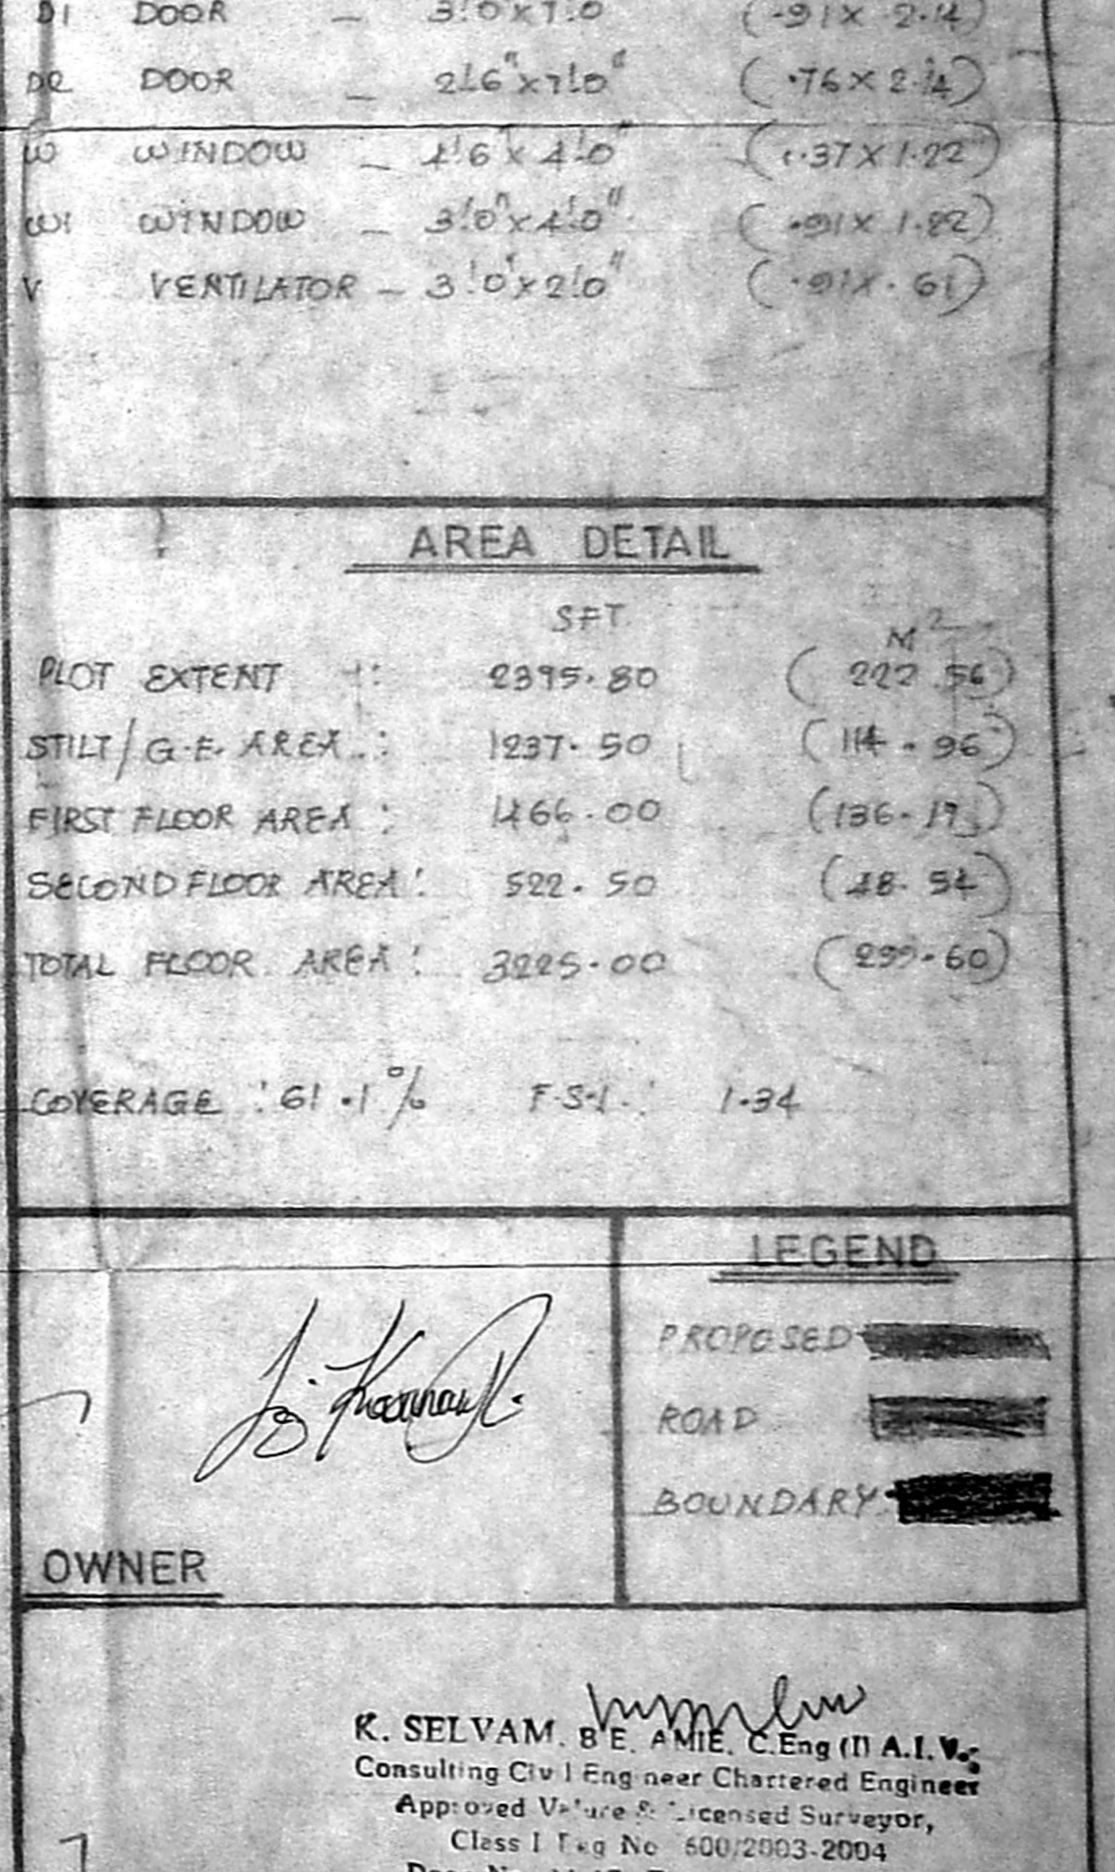 D1 DOOR - 3'.0"x7'.0" (.91 x 2.14)
D2 DOOR - 2'.6"x7'.0" (.76 x 2.14)
W WINDOW - 4'.6"x4'.0" (1.37 x 1.22)
W1 WINDOW - 3'.0"x4'.0" (.91 x 1.22)
V VENTILATOR - 3'.0"x2'.0" (.91 x .61)
AREA DETAIL
SFT. M²
PLOT EXTENT : 2395.80 (222.56)
STILT/G.F. AREA : 1237.50 (114.96)
FIRST FLOOR AREA : 1466.00 (136.19)
SECOND FLOOR AREA : 522.50 (48.54)
TOTAL FLOOR AREA : 3225.00 (299.60)
COVERAGE : 61.1% F.S.I. : 1.34
LEGEND
PROPOSED
ROAD
BOUNDARY
OWNER
K. SELVAM. B E. AMIE. C.Eng (I) A.I.V.,
Consulting Civil Engineer Chartered Engineer
Approved Valuer & Licensed Surveyor,
Class I Reg No 600/2003-2004